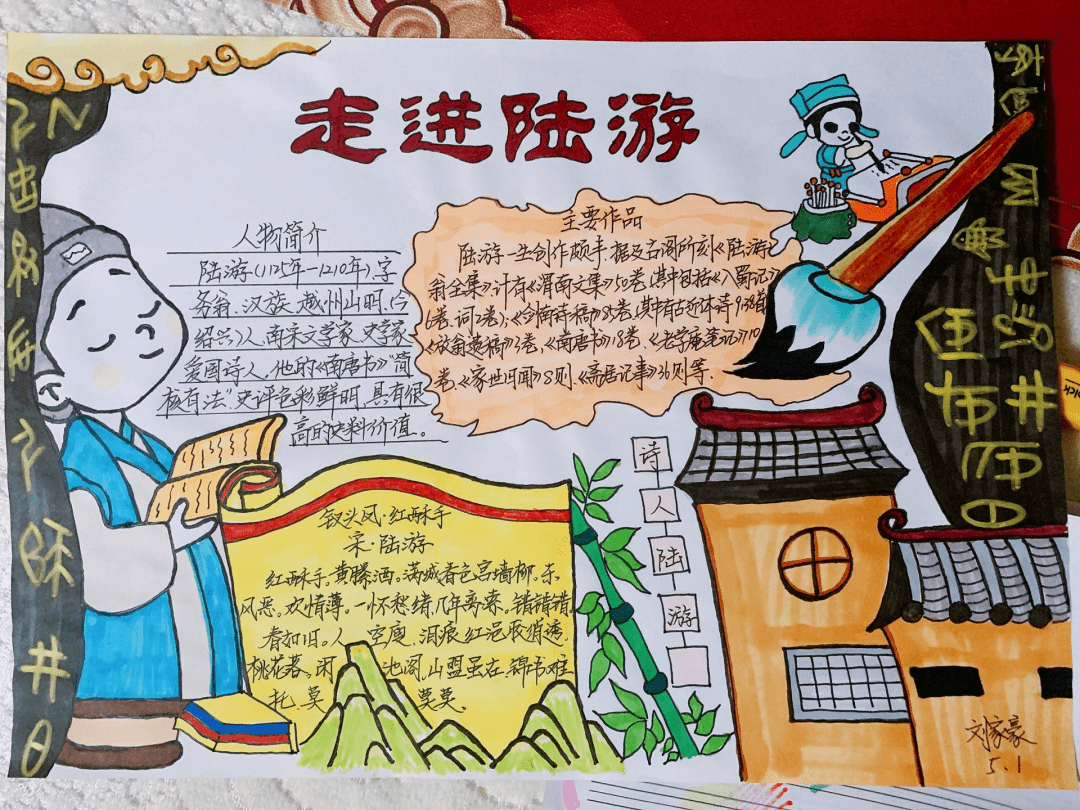 走进陆游
人物简介
陆游(1125年-1210年),字
务翁、汉族、越州山明,今
绍兴)人、南宋文学家、史学家
爱国诗人。他的《南唐书》"简
核有法",史评色彩鲜明,具有很
高的史料价值。
主要作品
陆游一生创作颇丰,据及古阁所刻《陆游
翁全集》计有《渭南文集》50卷(其中包括《入蜀记》
6卷、词2卷)、《剑南诗稿》85卷
《放翁遗稿》2卷、《南唐书》18卷、《老学庵笔记》10
卷、《家世旧闻》8则、《斋居记事》36则等.
钗头凤·红酥手
宋·陆游
红酥手。黄滕酒。满城春色宫墙柳。东
风恶。欢情薄。一怀愁绪几年离索。错错错.
春如旧。人 空瘦 泪痕红浥
桃花落、闲 池阁.山盟虽在.锦书难
托.莫 莫莫.
诗
人
陆
游
刘家豪
5.1